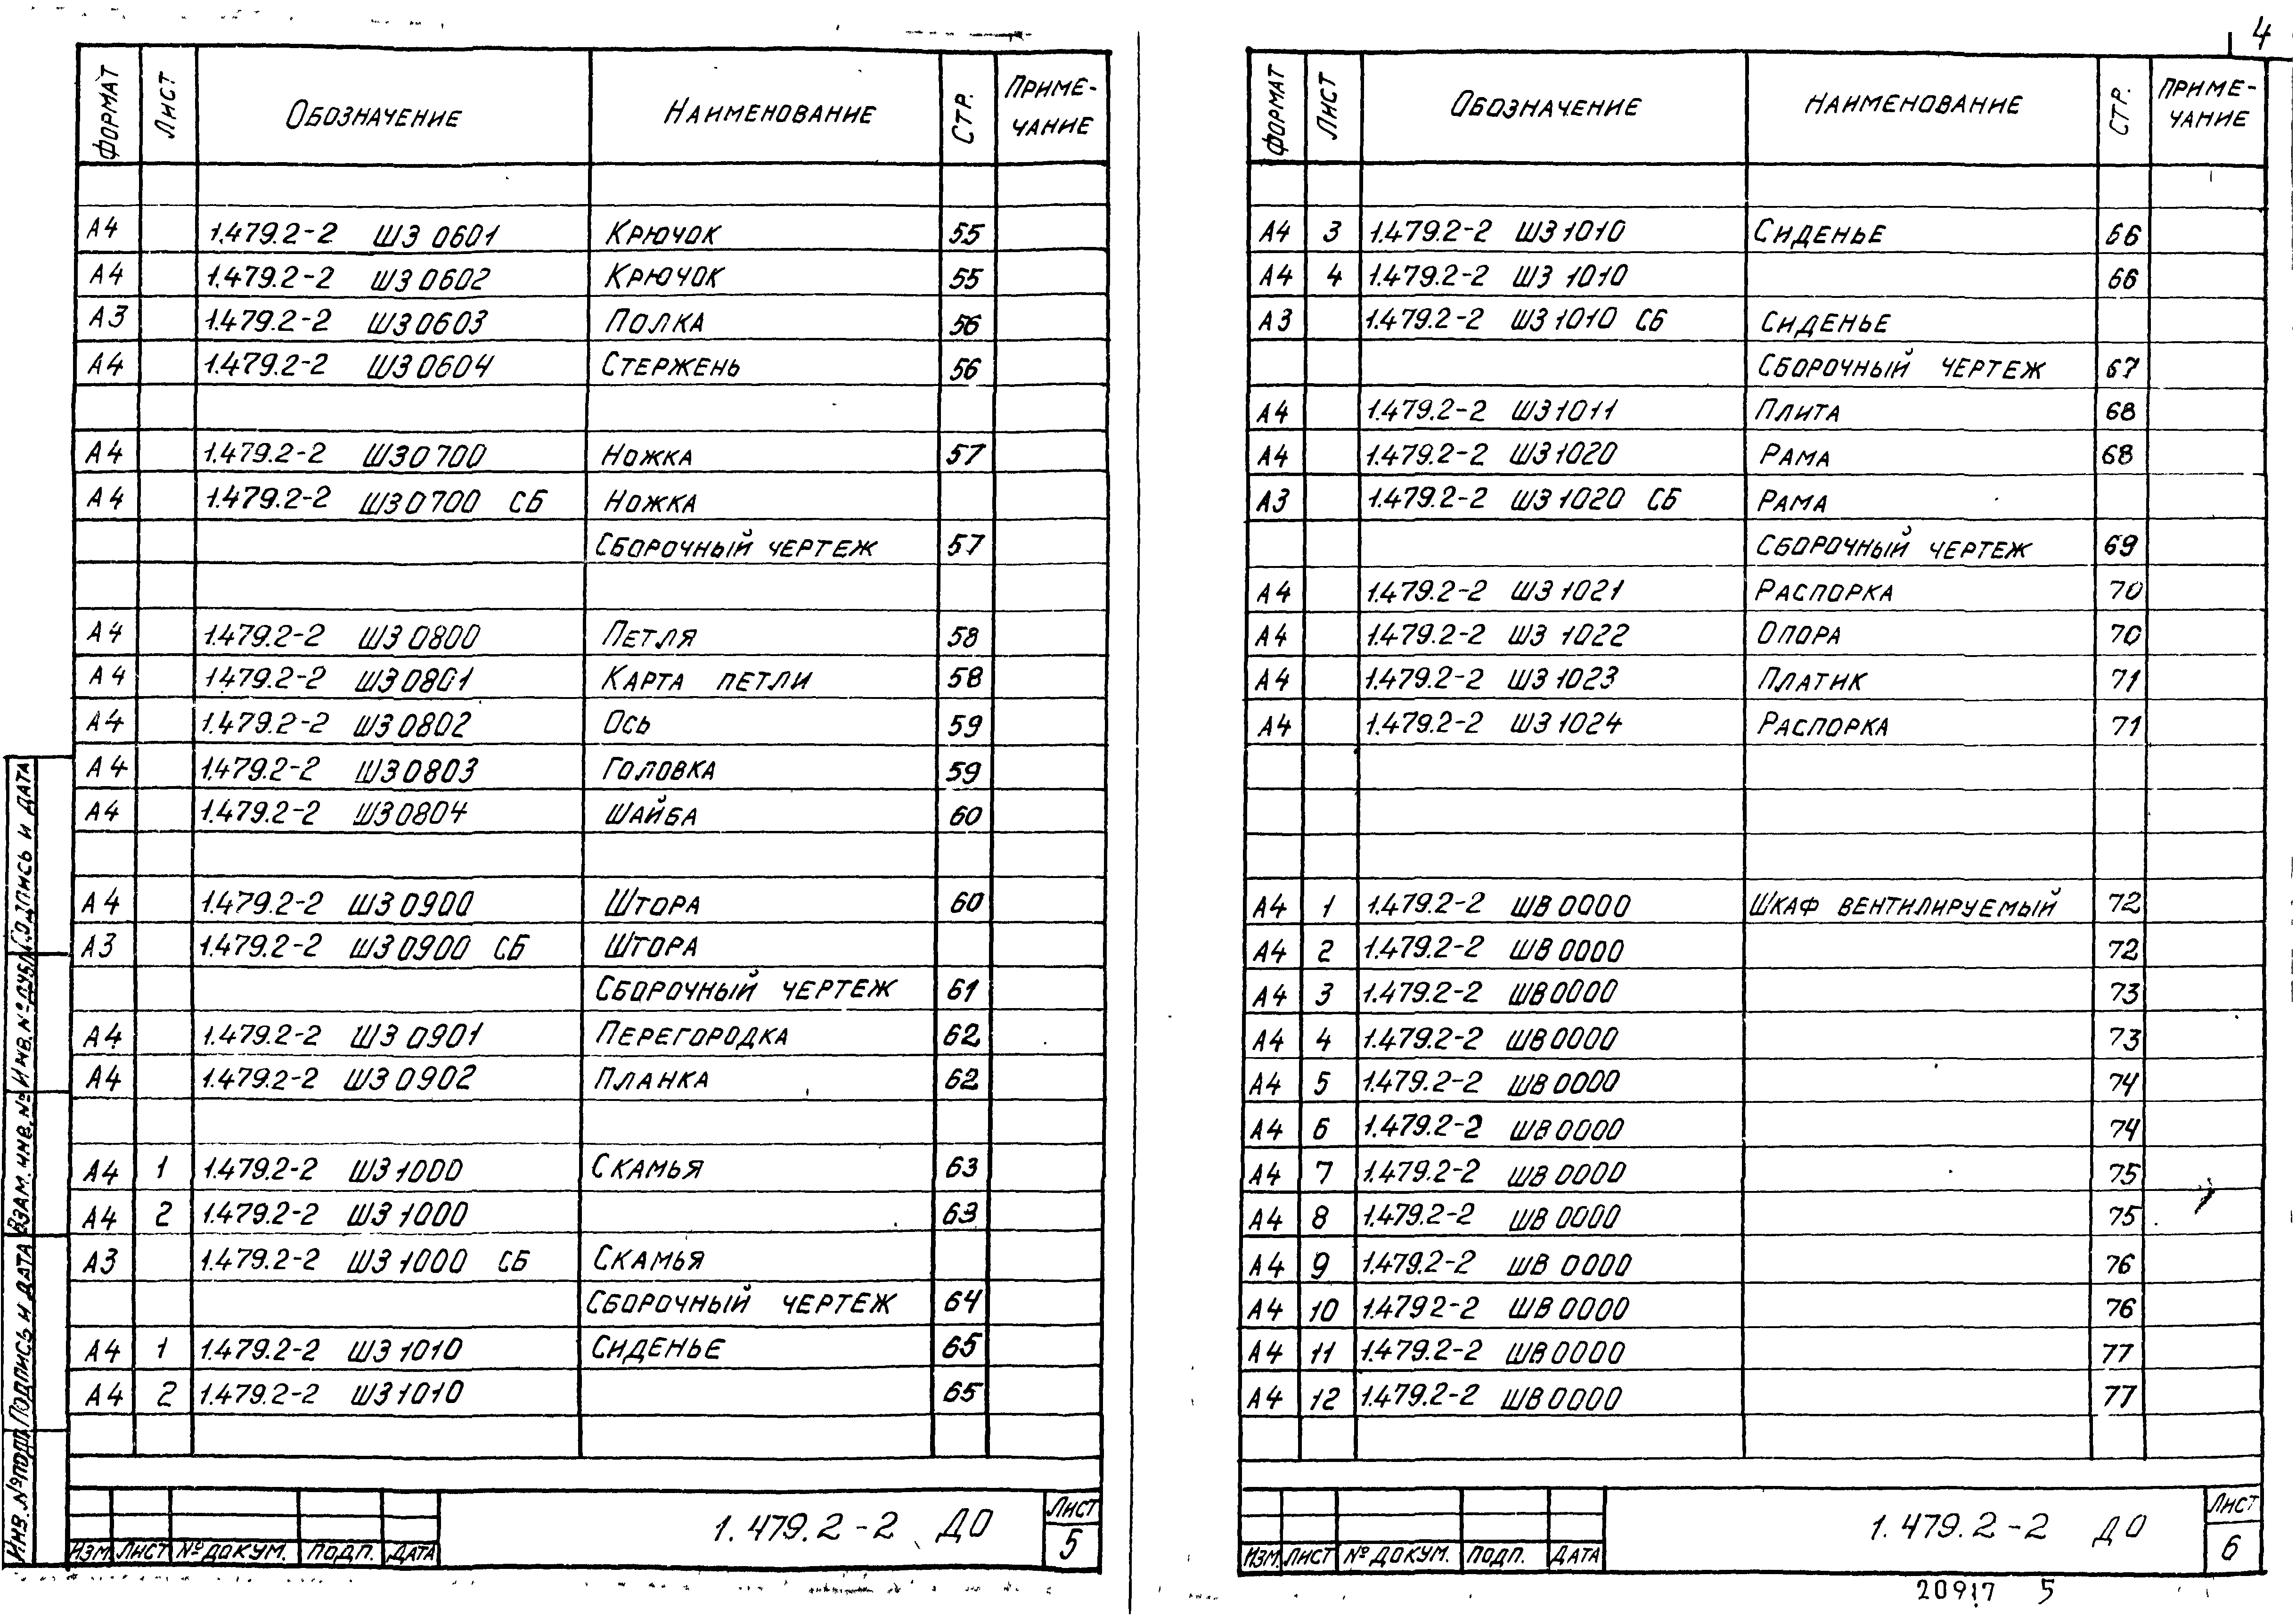 4
ФОРМАТ ЛИСТ ОБОЗНАЧЕНИЕ НАИМЕНОВАНИЕ СТР. ПРИМЕ-ЧАНИЕ
А4 1.479.2-2 ШЗ 0601 КРЮЧОК 55
А4 1.479.2-2 ШЗ 0602 КРЮЧОК 55
А3 1.479.2-2 ШЗ 0603 ПОЛКА 56
А4 1.479.2-2 ШЗ 0604 СТЕРЖЕНЬ 56
А4 1.479.2-2 ШЗ 0700 НОЖКА 57
А4 1.479.2-2 ШЗ 0700 СБ НОЖКА
СБОРОЧНЫЙ ЧЕРТЕЖ 57
А4 1.479.2-2 ШЗ 0800 ПЕТЛЯ 58
А4 1.479.2-2 ШЗ 0801 КАРТА ПЕТЛИ 58
А4 1.479.2-2 ШЗ 0802 ОСЬ 59
А4 1.479.2-2 ШЗ 0803 ГОЛОВКА 59
А4 1.479.2-2 ШЗ 0804 ШАЙБА 60
А4 1.479.2-2 ШЗ 0900 ШТОРА 60
А3 1.479.2-2 ШЗ 0900 СБ ШТОРА
СБОРОЧНЫЙ ЧЕРТЕЖ 61
А4 1.479.2-2 ШЗ 0901 ПЕРЕГОРОДКА 62
А4 1.479.2-2 ШЗ 0902 ПЛАНКА 62
А4 1 1.479.2-2 ШЗ 1000 СКАМЬЯ 63
А4 2 1.479.2-2 ШЗ 1000 63
А3 1.479.2-2 ШЗ 1000 СБ СКАМЬЯ
СБОРОЧНЫЙ ЧЕРТЕЖ 64
А4 1 1.479.2-2 ШЗ 1010 СИДЕНЬЕ 65
А4 2 1.479.2-2 ШЗ 1010 65
ИНВ. № ПОДЛ. ПОДПИСЬ И ДАТА ВЗАМ. ИНВ. № ИНВ. № ДУБЛ. ПОДПИСЬ И ДАТА
ИЗМ. ЛИСТ № ДОКУМ. ПОДП. ДАТА
1.479.2-2 ДО
ЛИСТ
5
ФОРМАТ ЛИСТ ОБОЗНАЧЕНИЕ НАИМЕНОВАНИЕ СТР. ПРИМЕ-ЧАНИЕ
А4 3 1.479.2-2 ШЗ 1010 СИДЕНЬЕ 66
А4 4 1.479.2-2 ШЗ 1010 66
А3 1.479.2-2 ШЗ 1010 СБ СИДЕНЬЕ
СБОРОЧНЫЙ ЧЕРТЕЖ 67
А4 1.479.2-2 ШЗ 1011 ПЛИТА 68
А4 1.479.2-2 ШЗ 1020 РАМА 68
А3 1.479.2-2 ШЗ 1020 СБ РАМА
СБОРОЧНЫЙ ЧЕРТЕЖ 69
А4 1.479.2-2 ШЗ 1021 РАСПОРКА 70
А4 1.479.2-2 ШЗ 1022 ОПОРА 70
А4 1.479.2-2 ШЗ 1023 ПЛАТИК 71
А4 1.479.2-2 ШЗ 1024 РАСПОРКА 71
А4 1 1.479.2-2 ШВ 0000 ШКАФ ВЕНТИЛИРУЕМЫЙ 72
А4 2 1.479.2-2 ШВ 0000 72
А4 3 1.479.2-2 ШВ 0000 73
А4 4 1.479.2-2 ШВ 0000 73
А4 5 1.479.2-2 ШВ 0000 74
А4 6 1.479.2-2 ШВ 0000 74
А4 7 1.479.2-2 ШВ 0000 75
А4 8 1.479.2-2 ШВ 0000 75
А4 9 1.479.2-2 ШВ 0000 76
А4 10 1.4792-2 ШВ 0000 76
А4 11 1.479.2-2 ШВ 0000 77
А4 12 1.479.2-2 ШВ 0000 77
ИЗМ. ЛИСТ № ДОКУМ. ПОДП. ДАТА
1.479.2-2 ДО
ЛИСТ
6
20917 5